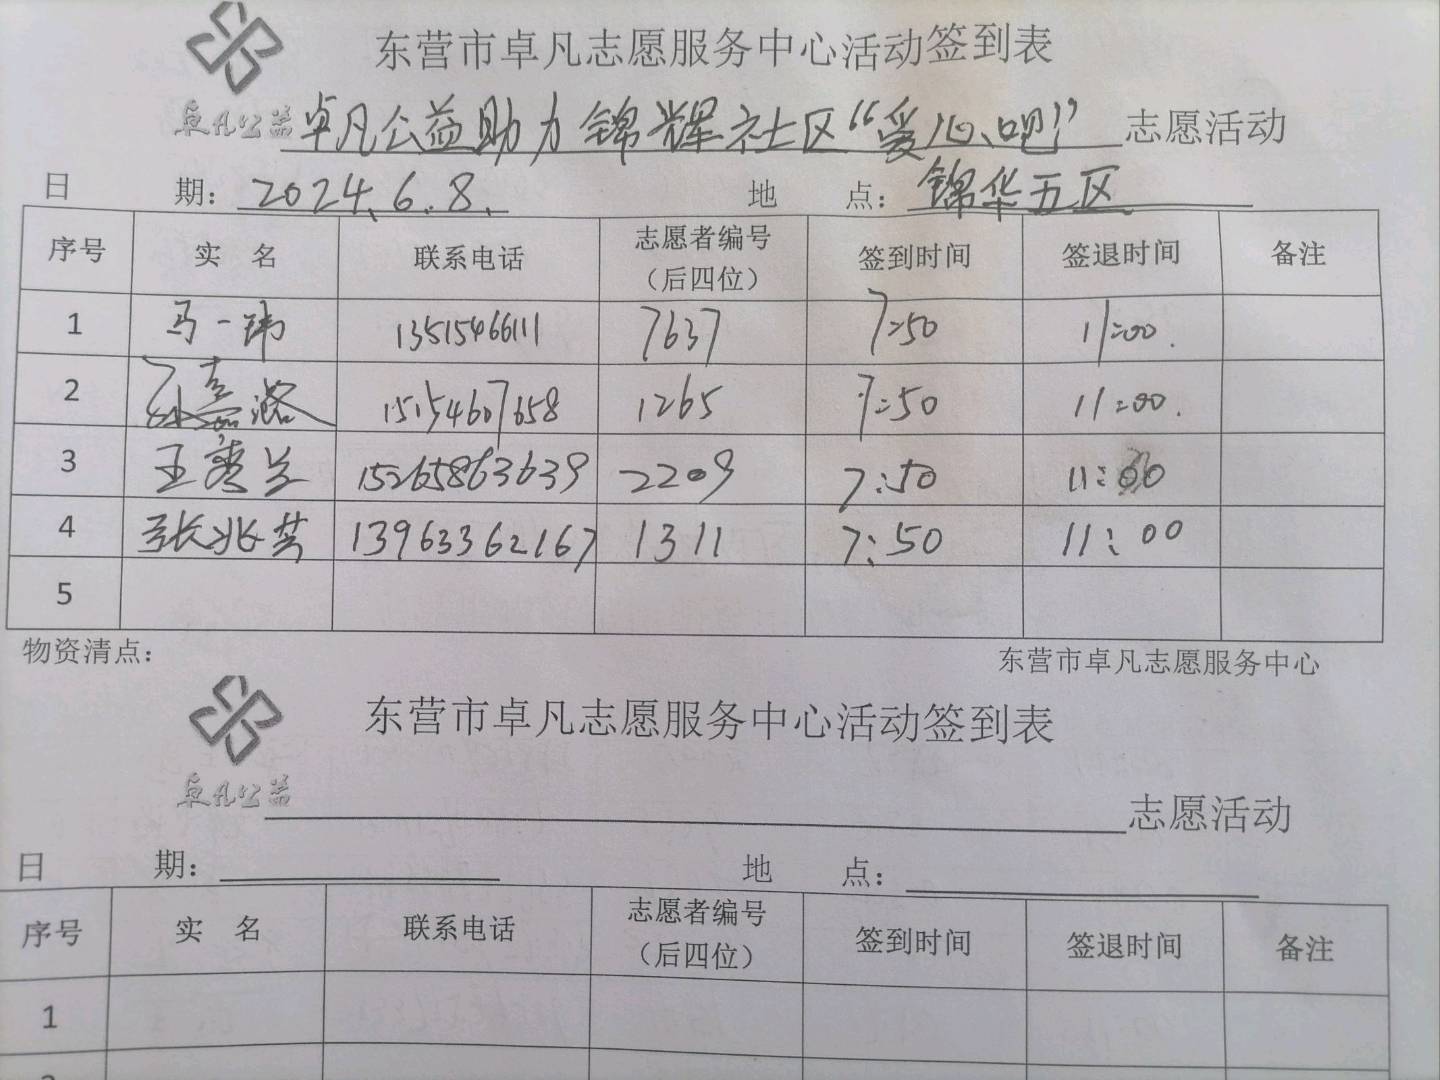 东营市卓凡志愿服务中心活动签到表
卓凡公益 卓凡公益助力锦辉社区“爱心吧!”志愿活动
日 期: 2024.6.8. 地 点: 锦华五区
序号 实 名 联系电话 志愿者编号（后四位） 签到时间 签退时间 备注
1 马一玮 13515466111 7637 7:50 11:00.
2 孙嘉潞 15154607658 1265 7:50 11:00.
3 王秀兰 15265863639 2209 7:50 11:00
4 张兆芸 13963362167 1311 7:50 11:00
5
物资清点: 东营市卓凡志愿服务中心
东营市卓凡志愿服务中心活动签到表
卓凡公益 志愿活动
日 期: 地 点:
序号 实 名 联系电话 志愿者编号（后四位） 签到时间 签退时间 备注
1